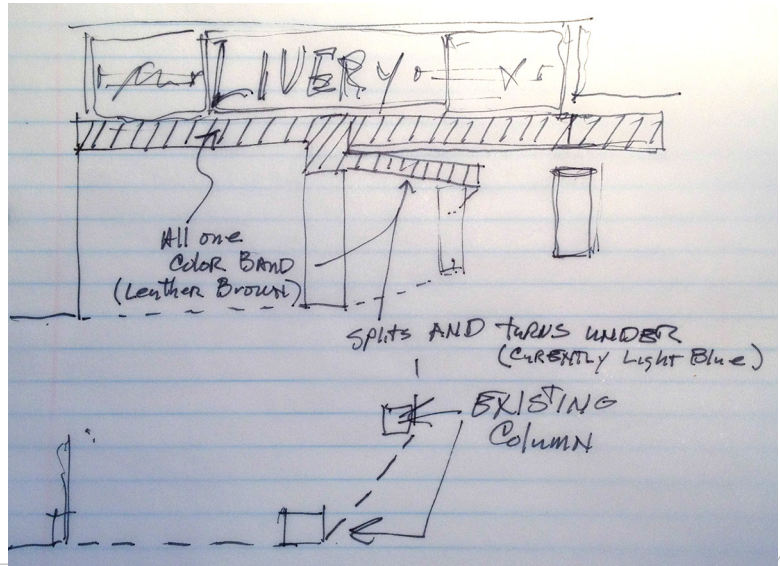 LIVERY
All one
Color Band
(Leather Brown)
Splits AND turns UNDER
(Curently Light Blue)
EXISTING
Column